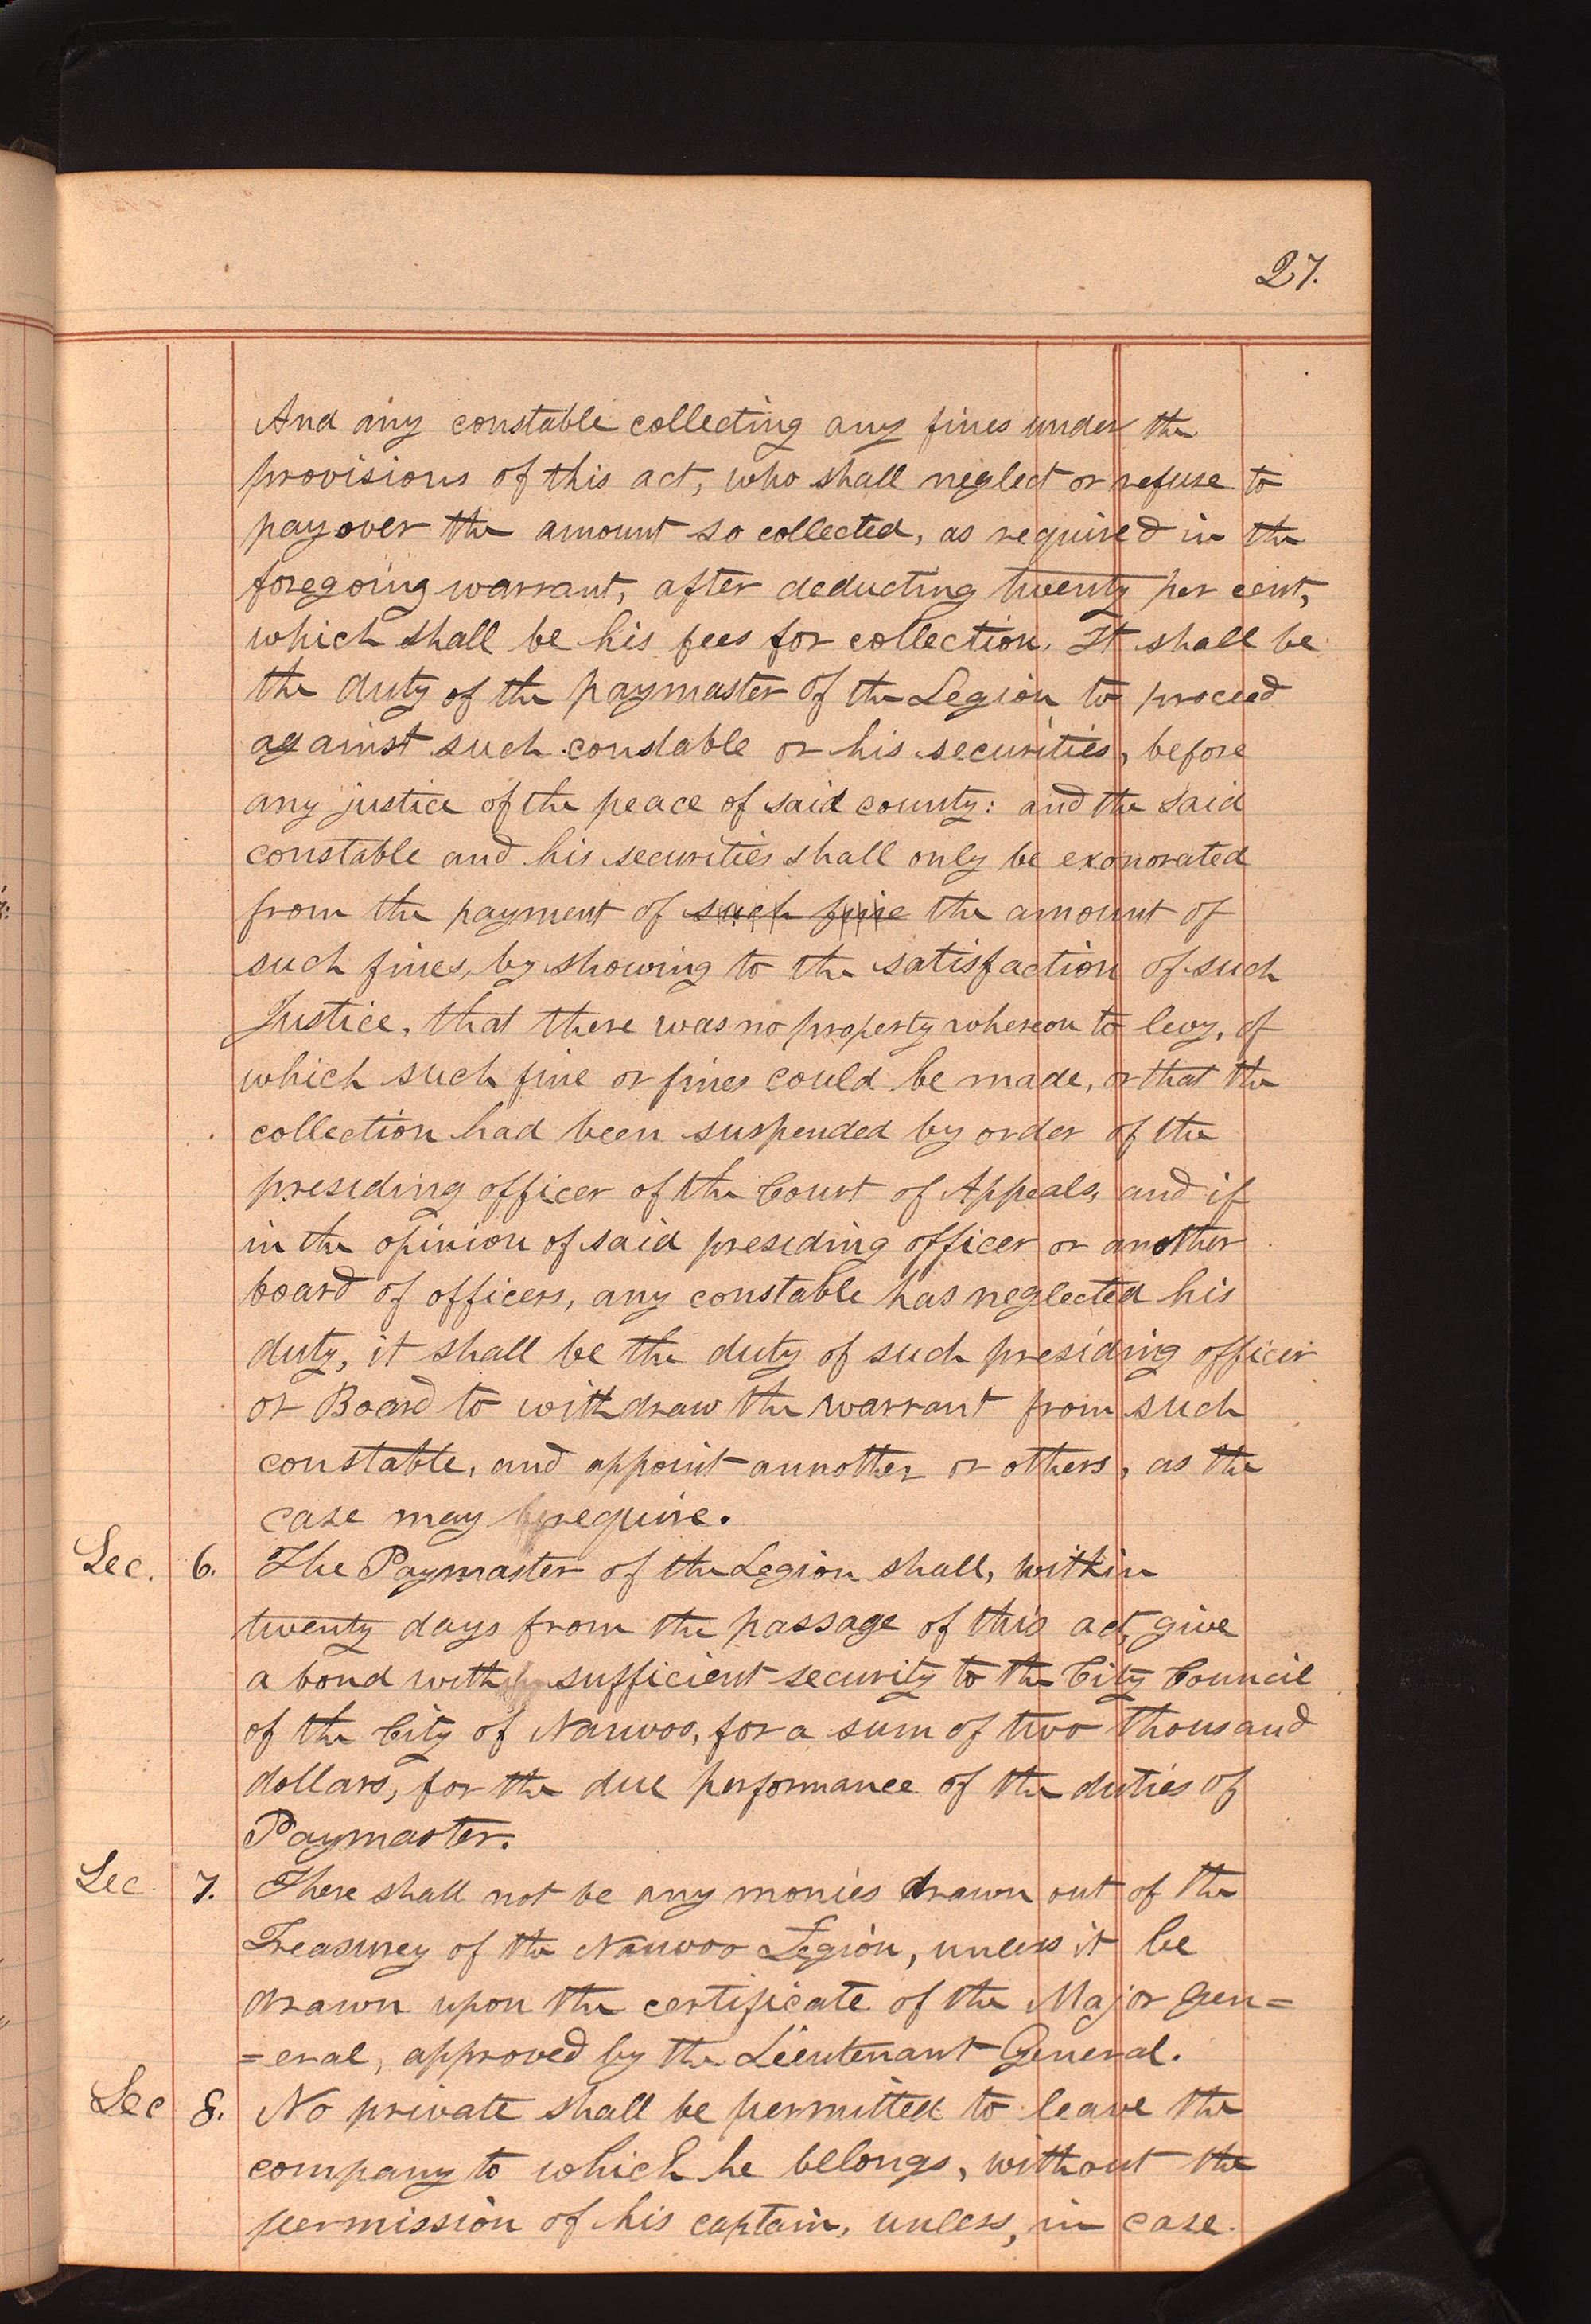 27.
And any constable collecting any fines under the
provisions of this act, who shall neglect or refuse to
pay over the amount so collected, as required in the
foregoing warrant, after deducting twenty per cent,
which shall be his fees for collection. It shall be
the duty of the paymaster of the Legion to proceed
against such constable or his securities, before
any justice of the peace of said county: and the said
constable and his securities shall only be exonorated
from the payment of such fine the amount of
such fines, by showing to the satisfaction of such
Justice, that there was no property whereon to levy, of
which such fine or fines could be made, or that the
collection had been suspended by order of the
presiding officer of the Court of Appeals, and if
in the opinion of said presiding officer or another
board of officers, any constable has neglected his
duty, it shall be the duty of such presiding officer
or Board to withdraw the warrant from such
constable, and appoint annother or others, as the
case may require.
Sec. 6. The Paymaster of the Legion shall, within
twenty days from the passage of this act, give
a bond with sufficient security to the City Council
of the City of Nauvoo, for a sum of two thousand
dollars, for the due performance of the duties of
Paymaster.
Sec 7. There shall not be any monies drawn out of the
Treasurey of the Nauvoo Legion, unless it be
drawn upon the certificate of the Major Gen=
=eral, approved by the Lieutenant General.
Sec 8. No private shall be permitted to leave the
company to which he belongs, without the
permission of his captain, unless, in case